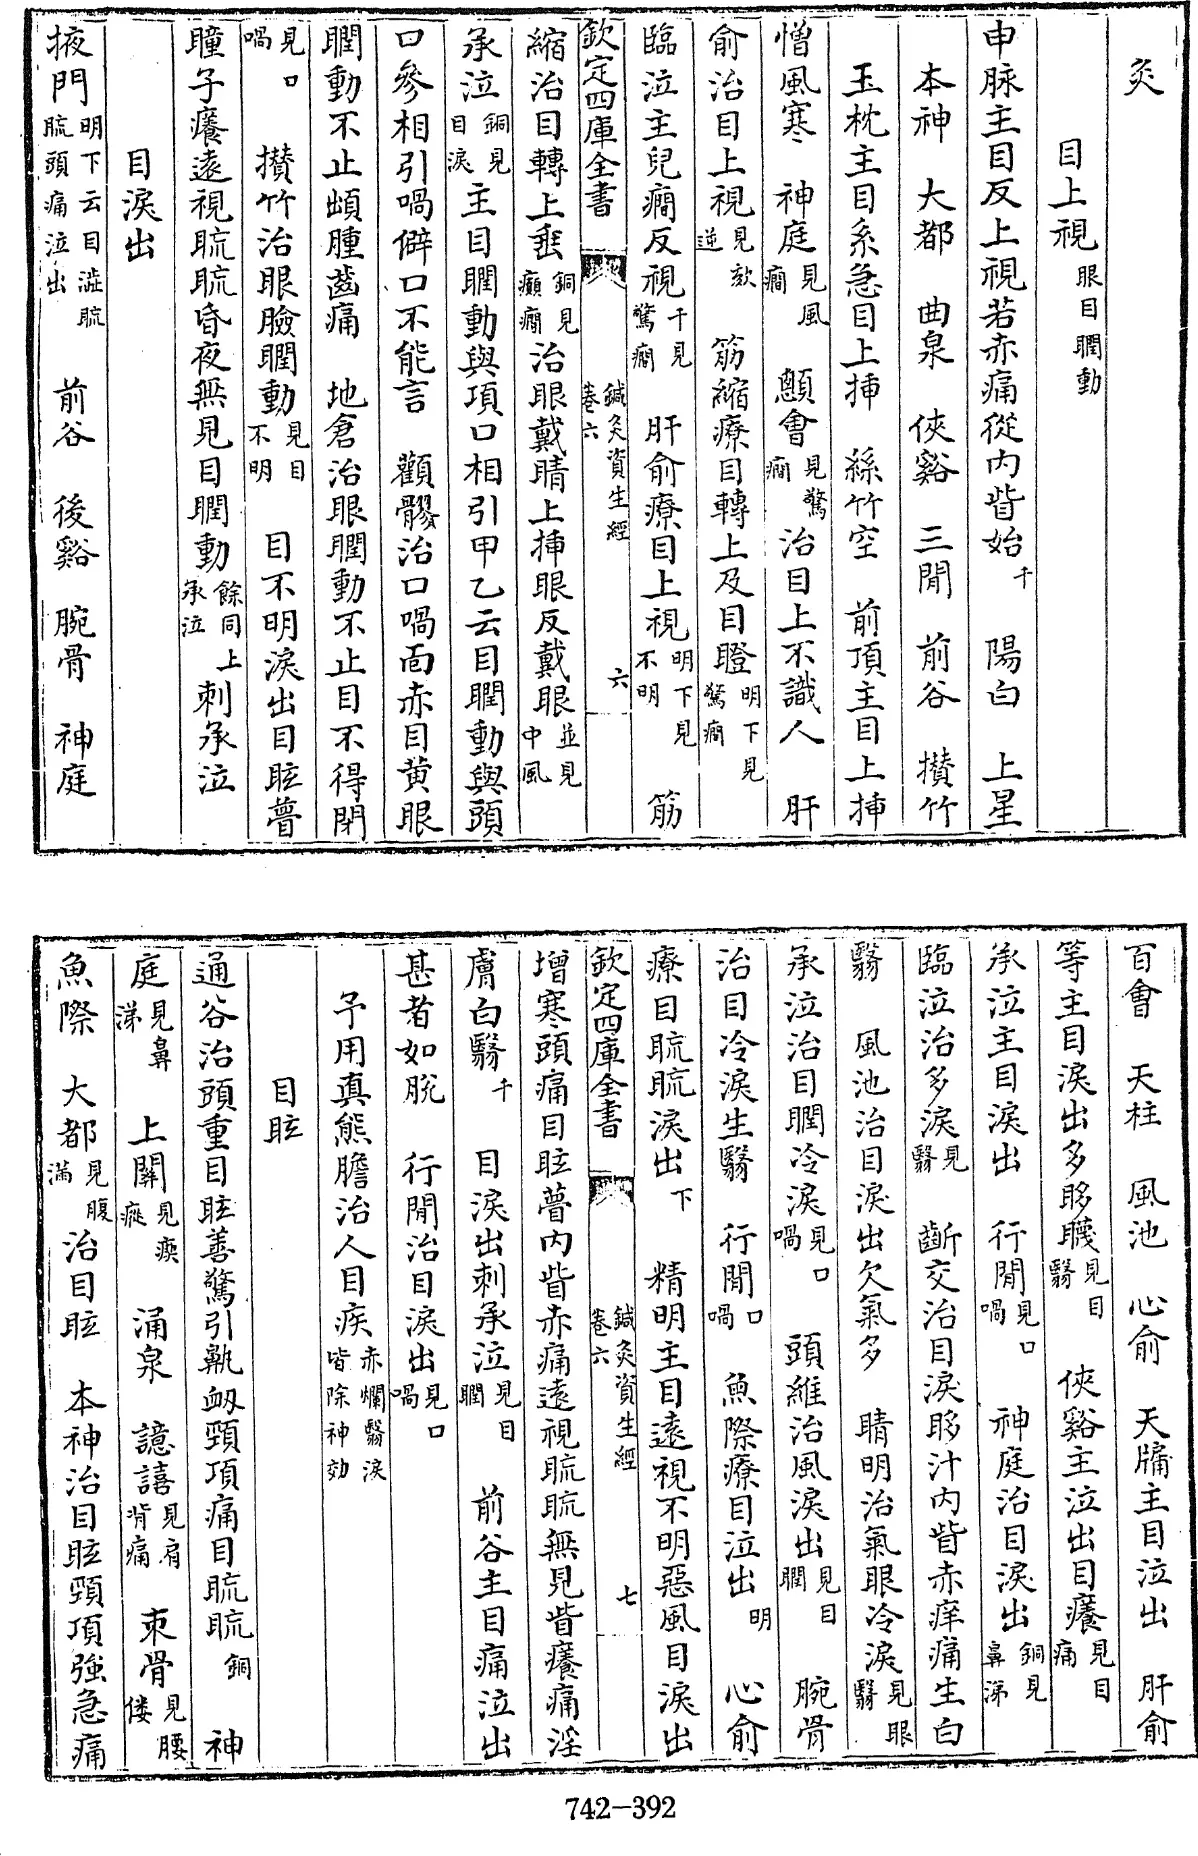 灸
目上視眼目瞤動
申脉主目反上視若赤痛從内眥始千　陽白　上星
本神　大都　曲泉　俠谿　三閒　前谷　攅竹
玉枕主目系急目上揷　絲竹空　前頂主目上揷
憎風寒　神庭見風癇　顖會見驚癇　治目上不識人　肝
俞治目上視見欬逆　筋縮療目轉上及目瞪明下見驚癇
臨泣主兒癇反視千見驚癇　肝俞療目上視明下見不明　筋
欽定四庫全書　鍼灸資生經卷六　六
縮治目轉上垂銅見癲癇治眼戴睛上揷眼反戴眼並見中風
承泣銅見目淚主目瞤動與項口相引甲乙云目瞤動與頭
口參相引喎僻口不能言　顴髎治口喎面赤目黄眼
瞤動不止䪼腫齒痛　地倉治眼瞤動不止目不得閉
見口喎　攅竹治眼臉瞤動見目不明　目不明淚出目眩瞢
瞳子癢遠視䀮䀮昏夜無見目瞤動餘同上承泣刺承泣
目淚出
掖門明下云目澁䀮頭痛泣出　前谷　後谿　腕骨　神庭
百會　天柱　風池　心俞　天牖主目泣出　肝俞
等主目淚出多眵䁾見目翳　俠谿主泣出目癢見目痛
承泣主目淚出　行閒見口喎　神庭治目淚出銅見鼻涕
臨泣治多淚見翳　齗交治目淚眵汁内眥赤痒痛生白
翳　風池治目淚出欠氣多　睛明治氣眼冷淚見眼翳
承泣治目瞤冷淚見口喎　頭維治風淚出見目瞤　腕骨
治目冷淚生翳　行閒口喎　魚際療目泣出明　心俞
療目䀮䀮淚出下　精明主目遠視不明惡風目淚出
欽定四庫全書　鍼灸資生經卷六　七
增寒頭痛目眩瞢内眥赤痛遠視䀮䀮無見眥癢痛淫
膚白翳千　目淚出刺承泣見目瞤　前谷主目痛泣出
甚者如脫　行閒治目淚出見口喎
予用真熊膽治人目疾赤爛翳淚皆除神効
目眩
通谷治頭重目眩善驚引鼽衂頸項痛目䀮䀮銅　神
庭見鼻涕　上關見瘈瘲　涌泉　譩譆見肩背痛　束骨見腰僂
魚際　大都見腹滿治目眩　本神治目眩頸項強急痛
742-392